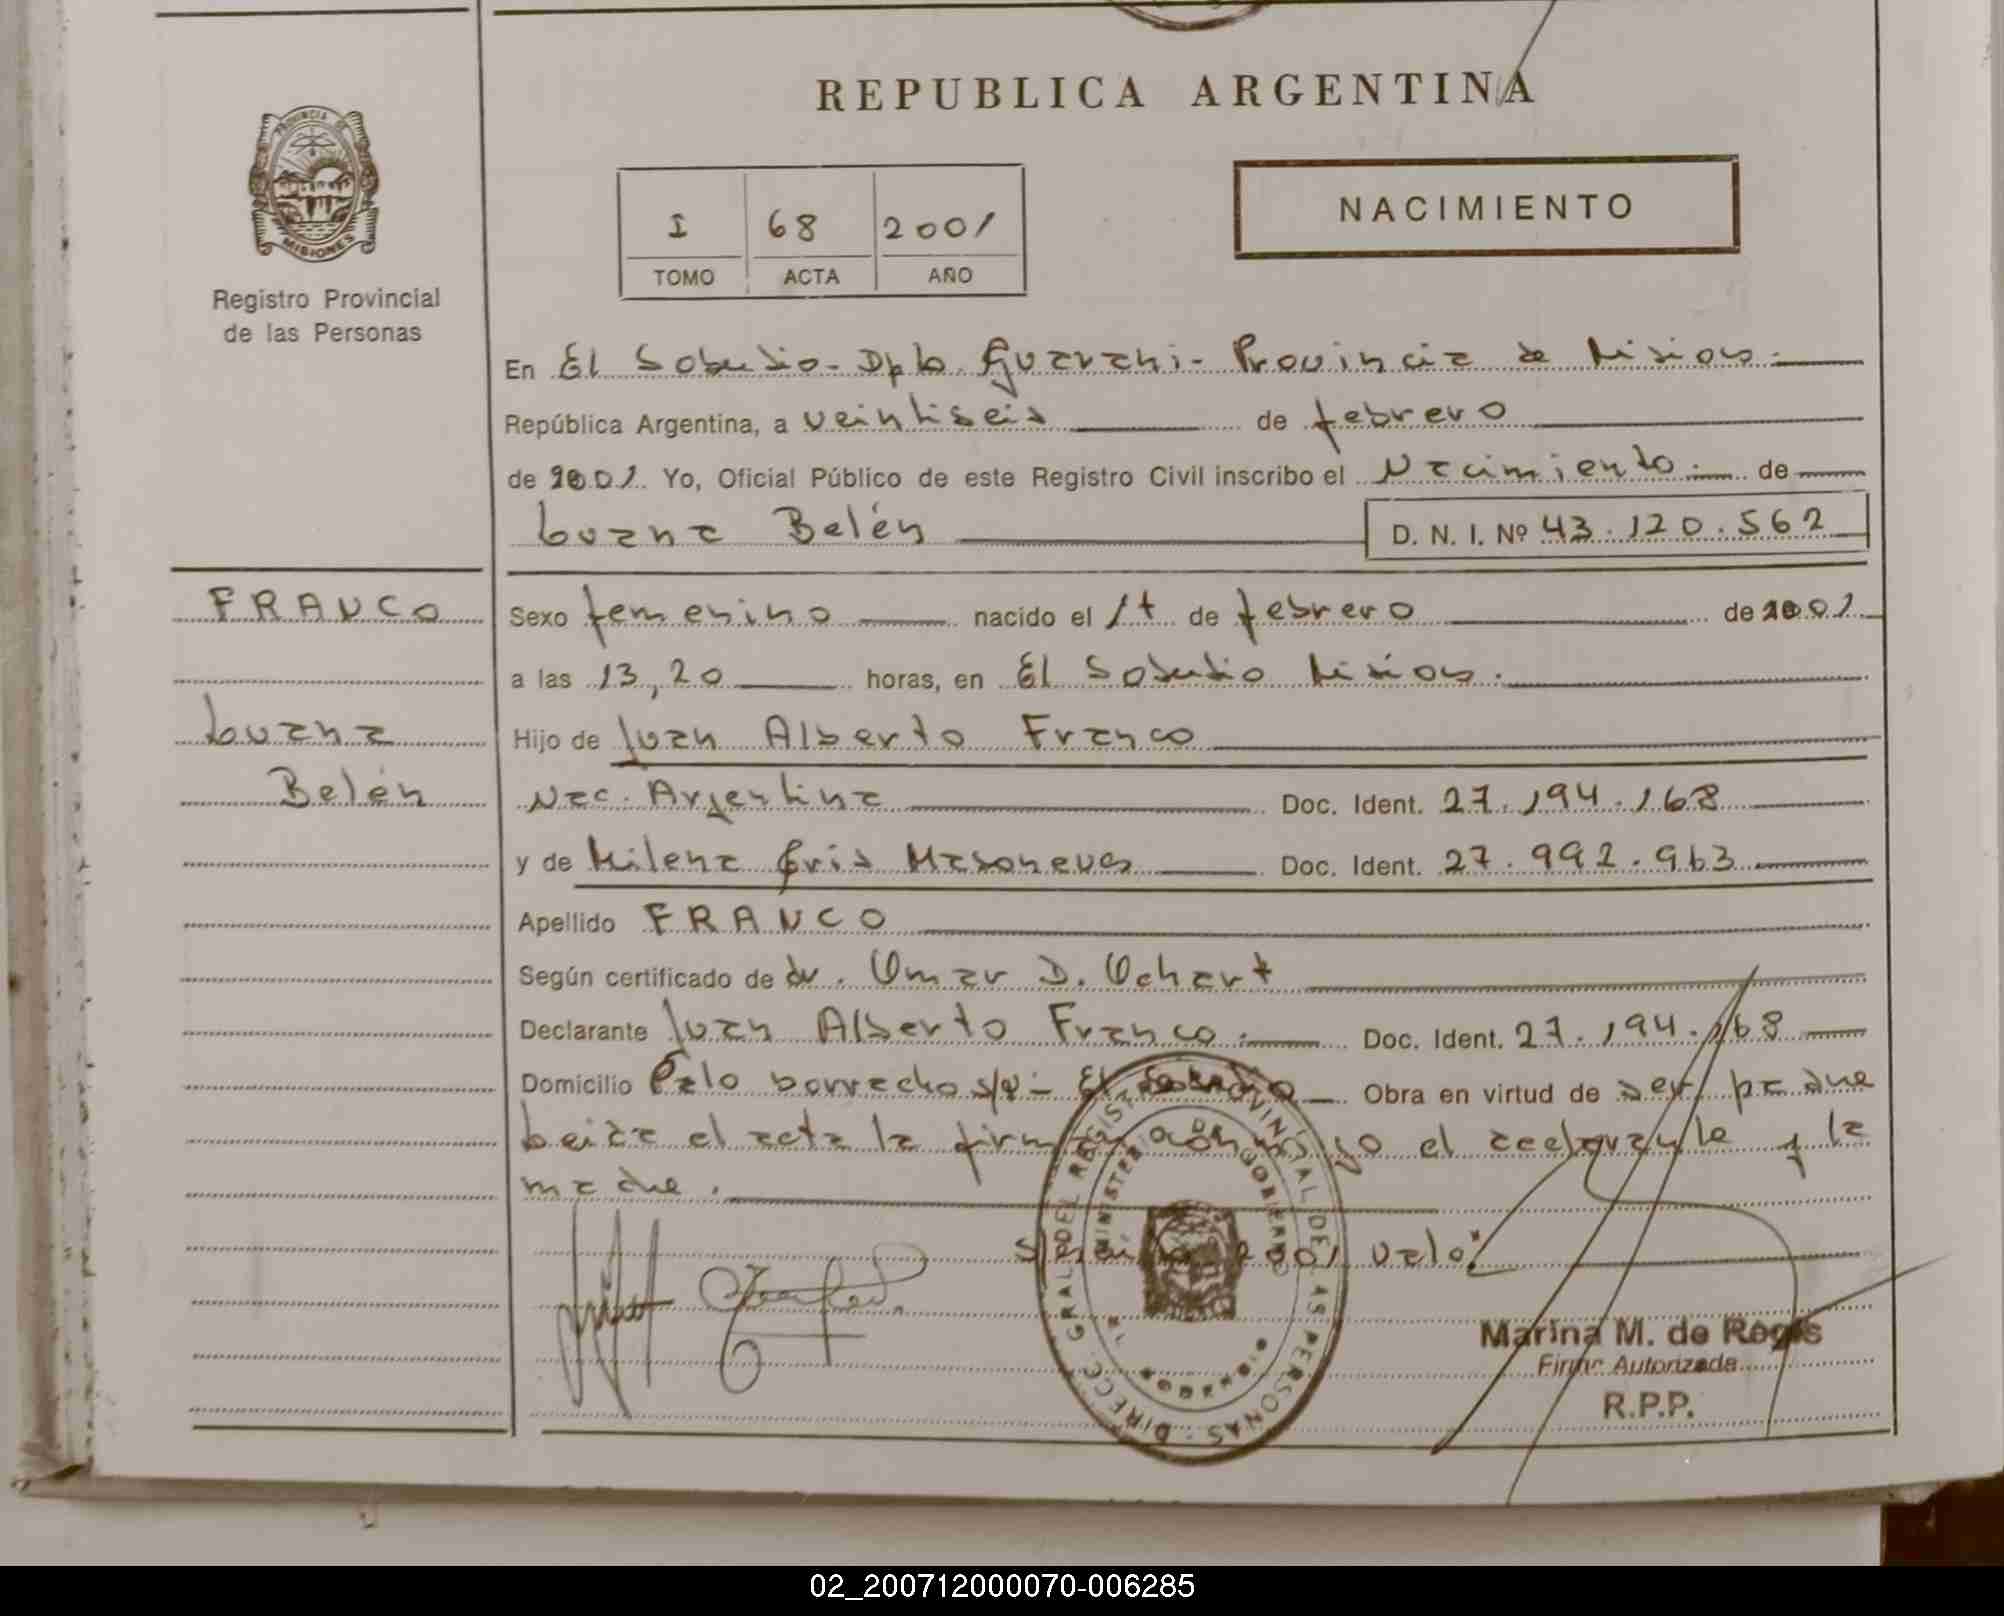 REPUBLICA ARGENTINA
PROVINCIA DE
MISIONES
Registro Provincial
de las Personas
I 68 2001
TOMO ACTA AÑO
NACIMIENTO
En El Soberbio - Dpto Guarani - Provincia de Misiones.
República Argentina, a veintiseis de febrero
de 2001. Yo, Oficial Público de este Registro Civil inscribo el Nacimiento. de
Luana Belén D. N. I. Nº 43.120.562
FRANCO
Luana
Belén
Sexo femenino nacido el de febrero de 2001
a las 13,20 horas, en El Soberbio Misiones.
Hijo de Juan Alberto Franco
Nac. Argentina Doc. Ident. 27.194.168
y de Milena Doc. Ident. 27.992.963
Apellido FRANCO
Según certificado de dr. Omar D. Ochart
Declarante Juan Alberto Franco. Doc. Ident. 27.194.168
Domicilio Palo borracho s/nº - El Soberbio Obra en virtud de ser padre
leida el acta la firman conmigo el declarante y la
madre.
2001 vale.
DIRECC. GRAL. DEL REGISTRO PROVINCIAL DE LAS PERSONAS
MINISTERIO DE GOBIERNO
Marina M. de Regis
Firma Autorizada
R.P.P.
02_200712000070-006285